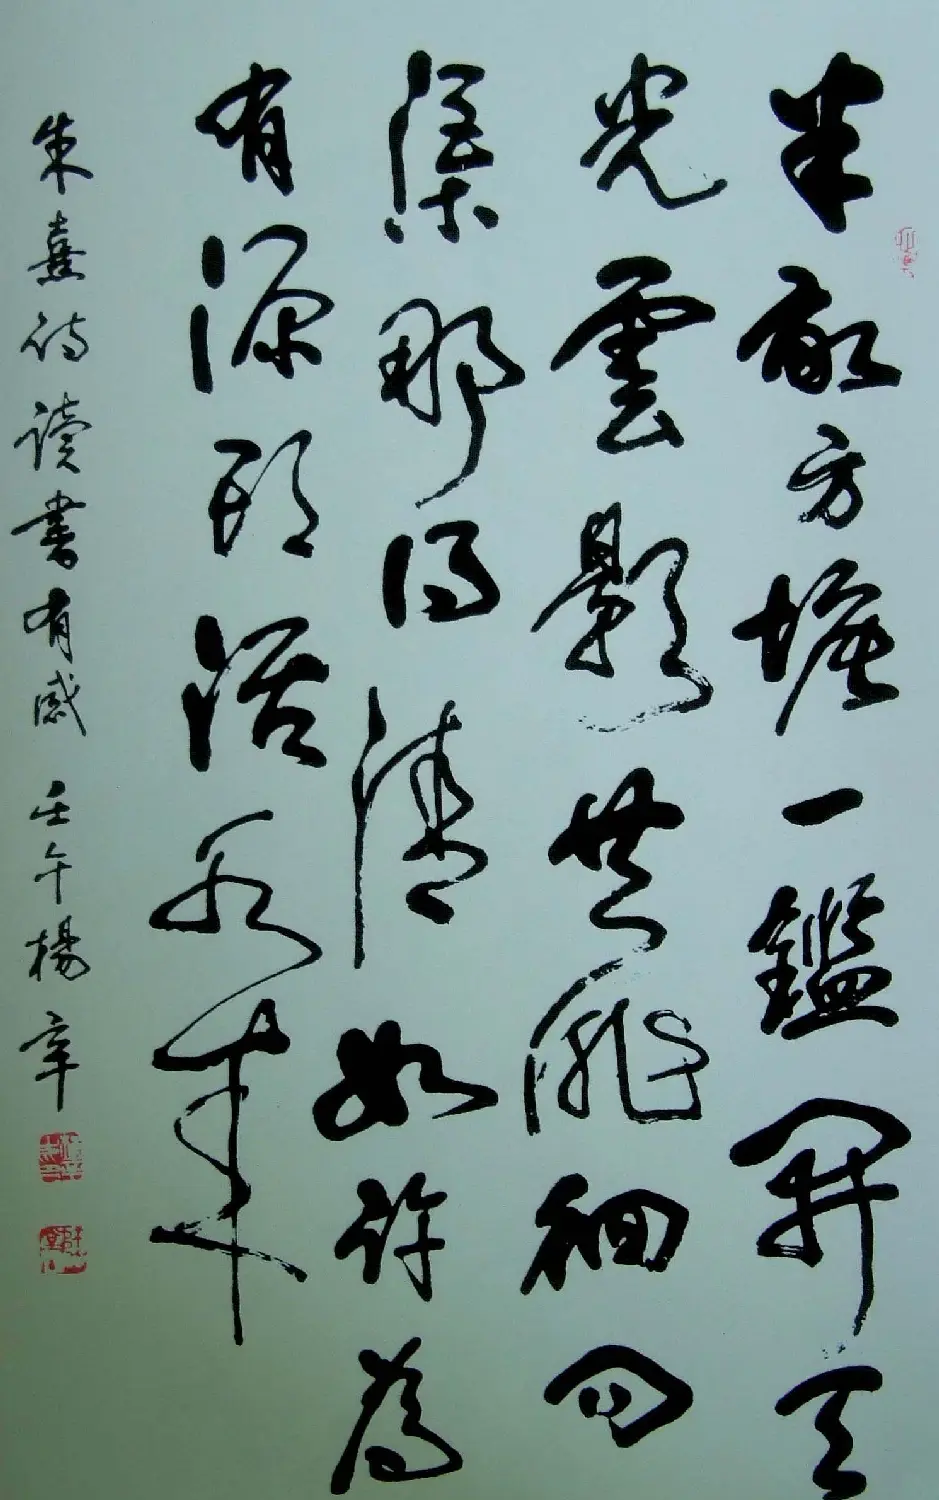 半畝方塘一鑑開天
光雲影共徘徊问
渠那得清如許為
有源頭活水來
朱熹詩讀書有感 壬午楊辛